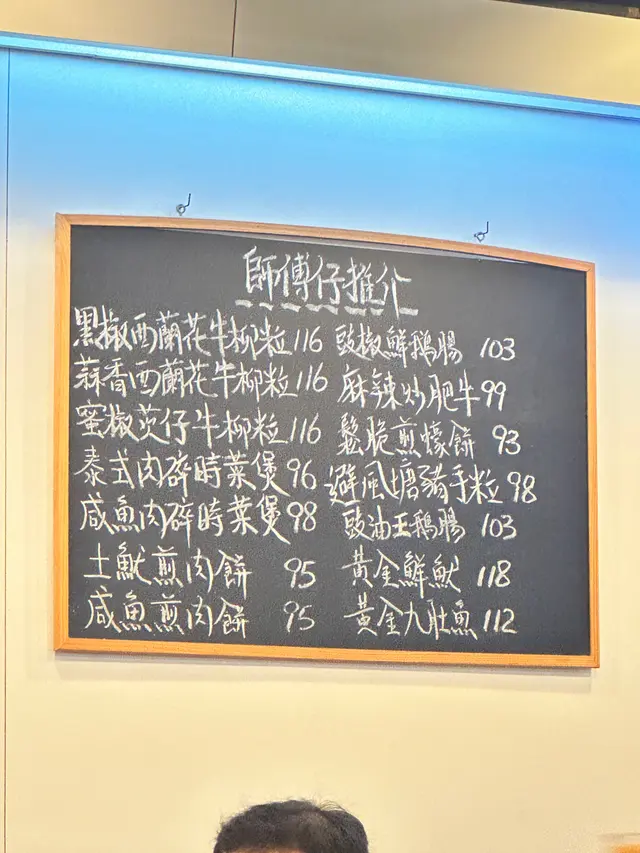 師傅仔推介
黑椒西蘭花牛柳粒116
蒜香西蘭花牛柳粒116
蜜椒茨仔牛柳粒116
泰式肉碎時菜煲96
咸魚肉碎時菜煲98
土魷煎肉餅 95
咸魚煎肉餅 95
豉椒鮮鵝腸 103
麻辣炒肥牛99
鬆脆煎蠔餅 93
避風塘豬手粒98
豉油王鵝腸 103
黃金鮮魷 118
黃金九肚魚112